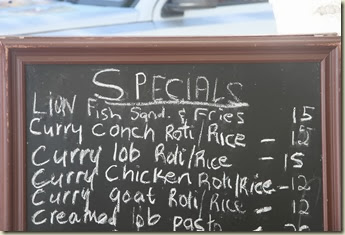 SPECIALS
Lion Fish Sand. & Fries 15
Curry Conch Roti/Rice - 12
Curry lob Roti/Rice - 15
Curry Chicken Roti/Rice - 12
Curry goat Roti/Rice - 12
Creamed lob pasta